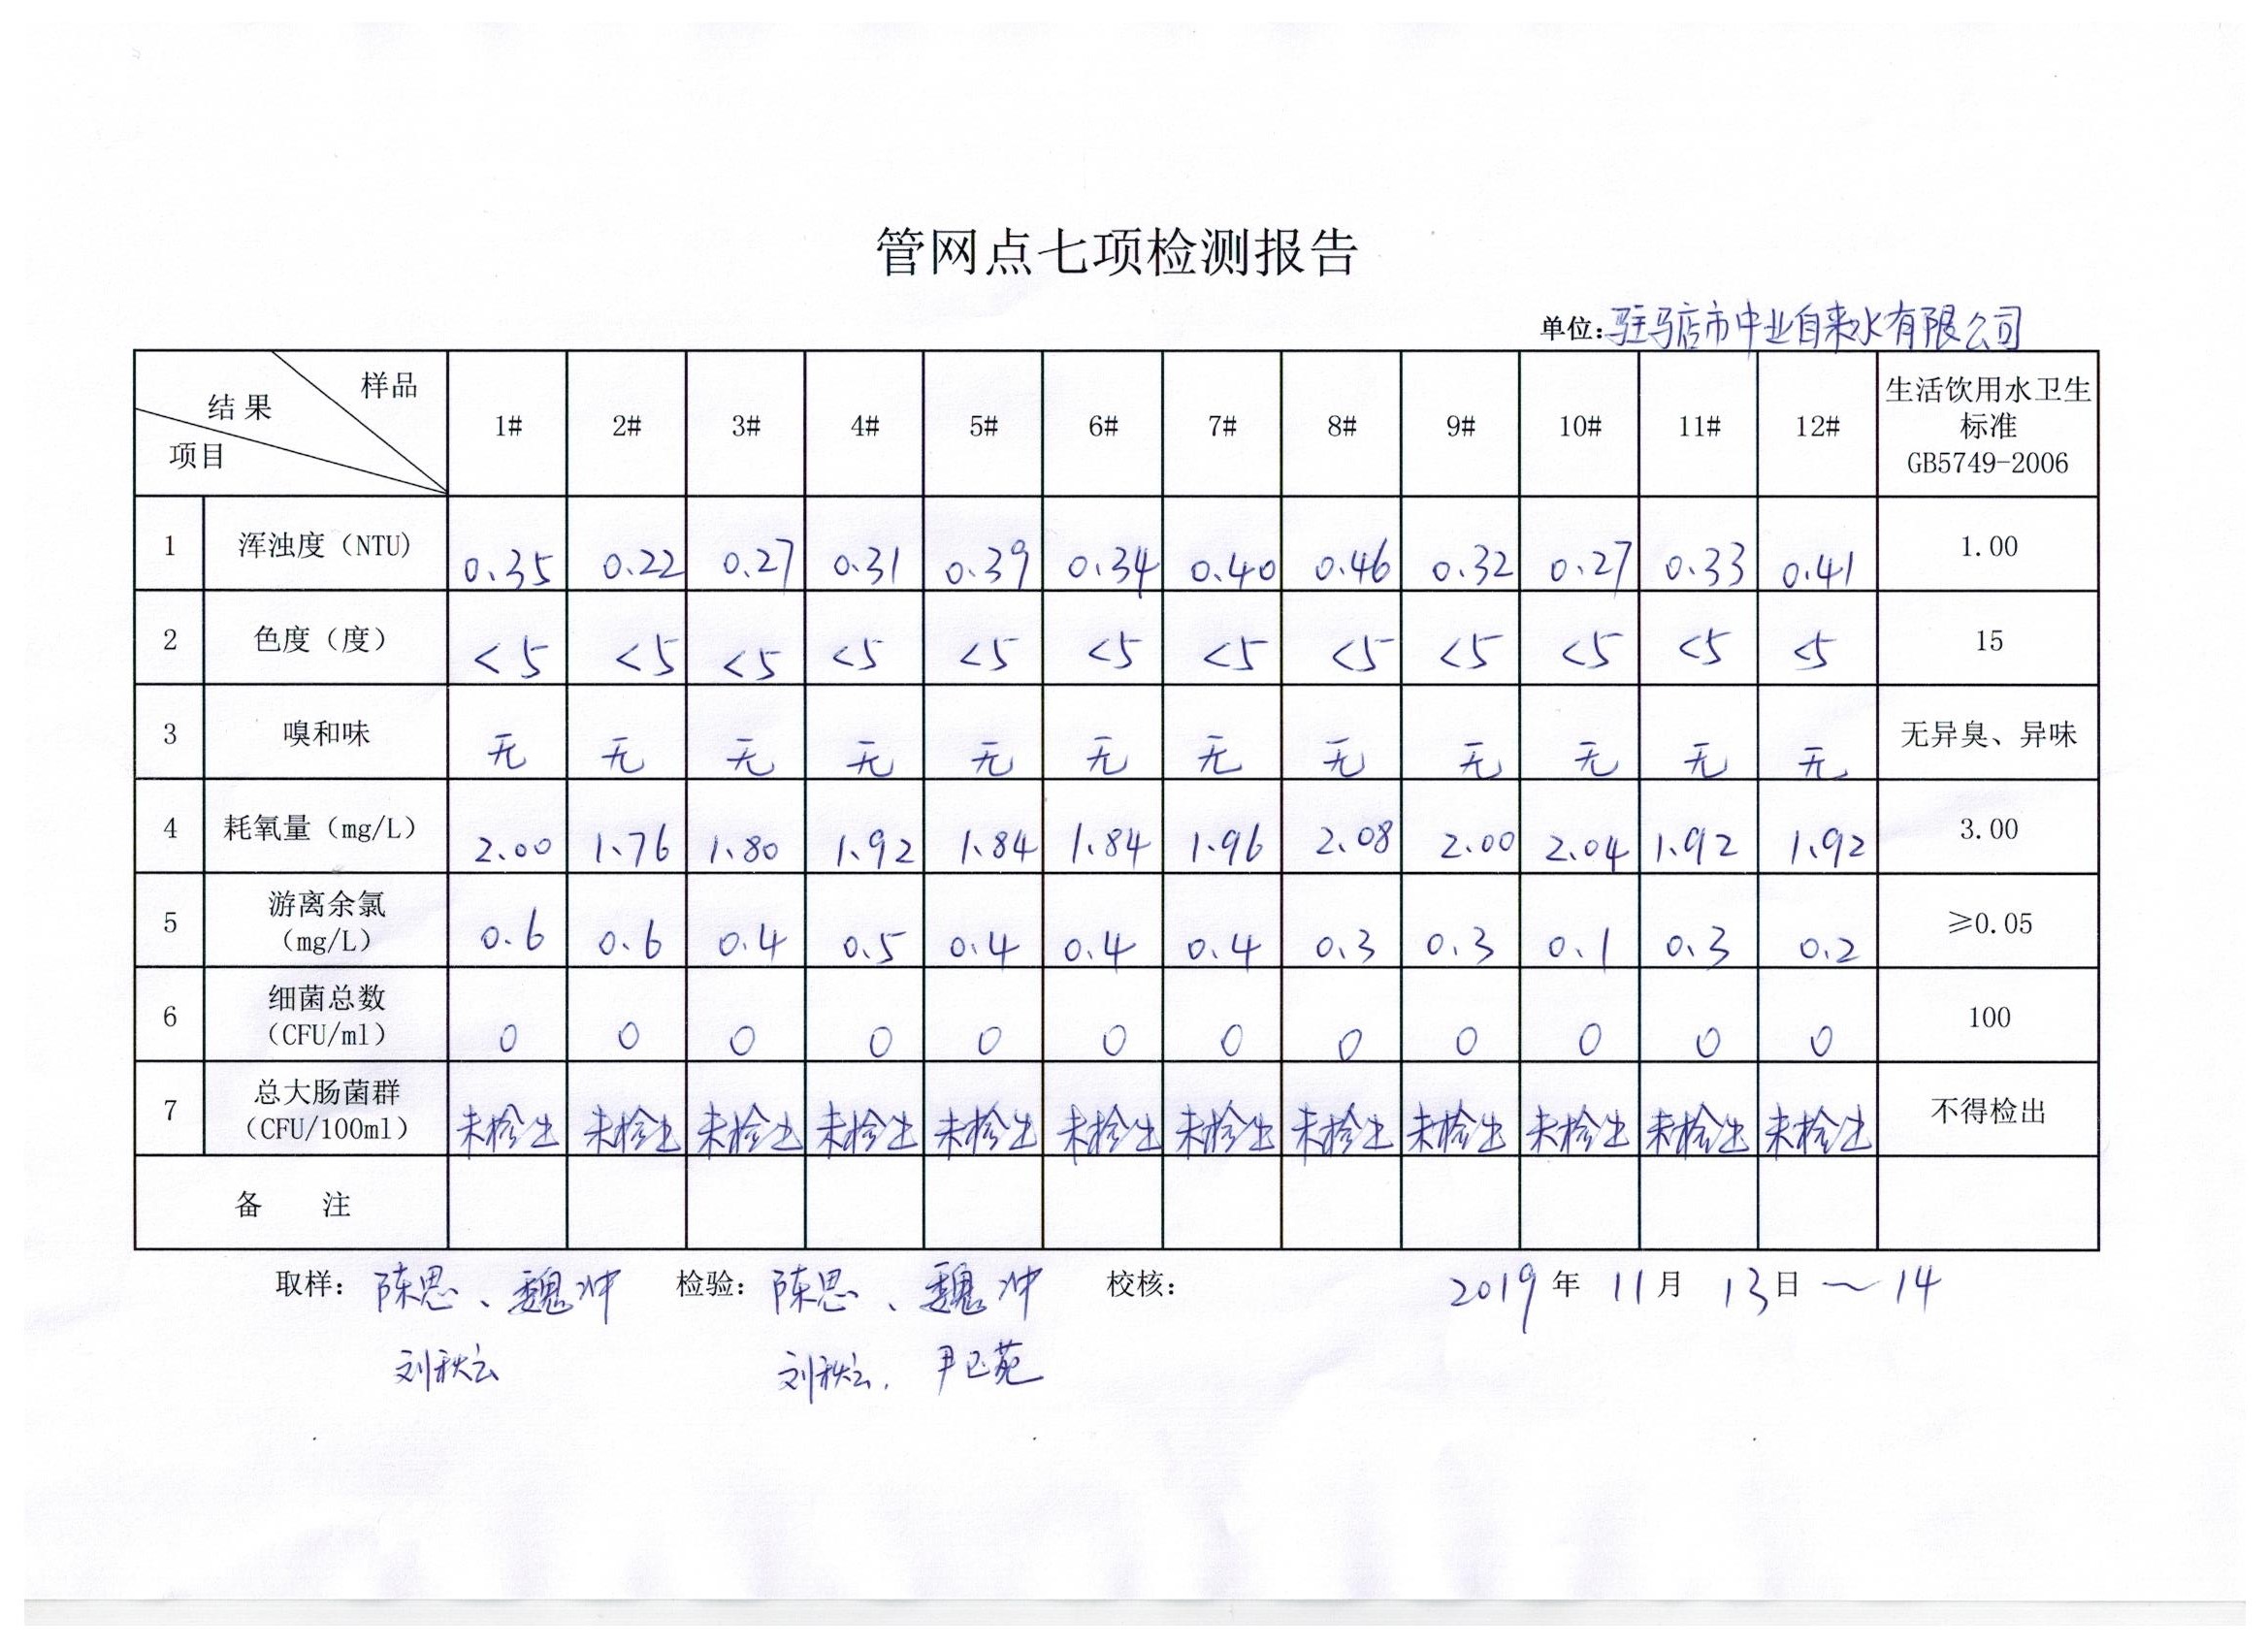 管网点七项检测报告
单位:驻马店市中业自来水有限公司
样品 结果 项目 1# 2# 3# 4# 5# 6# 7# 8# 9# 10# 11# 12# 生活饮用水卫生标准 GB5749-2006
1 浑浊度（NTU) 0.35 0.22 0.27 0.31 0.39 0.34 0.40 0.46 0.32 0.27 0.33 0.41 1.00
2 色度（度） <5 <5 <5 <5 <5 <5 <5 <5 <5 <5 <5 <5 15
3 嗅和味 无 无 无 无 无 无 无 无 无 无 无 无 无异臭、异味
4 耗氧量（mg/L） 2.00 1.76 1.80 1.92 1.84 1.84 1.96 2.08 2.00 2.04 1.92 1.92 3.00
5 游离余氯（mg/L） 0.6 0.6 0.4 0.5 0.4 0.4 0.4 0.3 0.3 0.1 0.3 0.2 ≥0.05
6 细菌总数（CFU/ml） 0 0 0 0 0 0 0 0 0 0 0 0 100
7 总大肠菌群（CFU/100ml） 未检出 未检出 未检出 未检出 未检出 未检出 未检出 未检出 未检出 未检出 未检出 未检出 不得检出
备 注
取样: 陈思、魏冲 检验: 陈思、魏冲 校核: 2019年11月13日~14
刘秋云 刘秋云. 尹苑